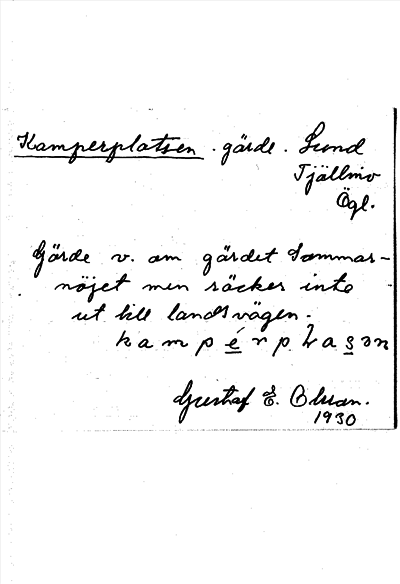 Kamperplatsen . gärde . Lund
Tjällmo
Ögl.
Gärde v. om gärdet Sommar-
nöjet men räcker inte
ut till landsvägen.
kampérplasən
Gustaf E. Olsson.
1930